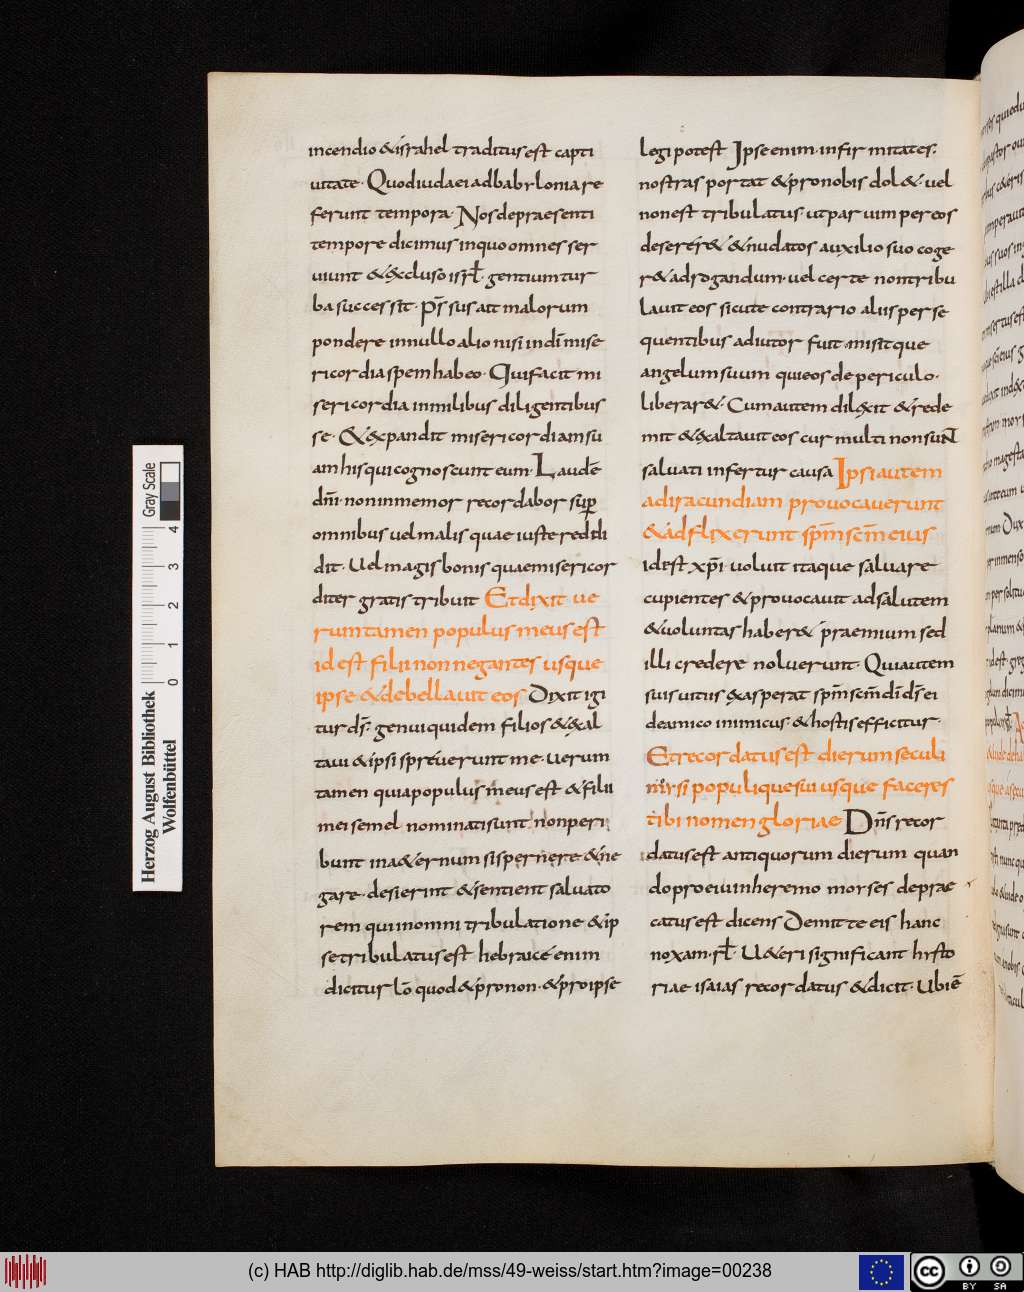 incendio & isrl̅ahel traditus est capti
uitate · Quod iudaei ad babyloniare
ferunt tempora · Nos de praesenti
tempore dicimus in quo omnes ser
uiunt & excluso isrl̅ · gentium tur
ba successit · Ps̅ sus ait malorum
pondere in nullo alio nisi in dn̅i mise
ricordia spem habeo · Qui facit mi
sericordia in milibus diligentibus
se · & expandit misericordiam su
am his qui cognoscunt eum · Laude̅
dn̅i non inmemor recordabor sup̅
omnibus uel malis quae iuste reddi
dit · Uel magis bonis quae misericor
diter gratis tribuit Et dixit ue
rum tamen populus meus est
id est filii non negantes usque
ipse & debellauit eos Dixit igi
tur ds̅ · genui quidem filios & exal
taui & ipsi spreuerunt me · uerum
tamen quia populus meus est & filii
mei semel nominati sunt non peri
bunt in a&ernum si spernere & ne
gare · desierint & sentient saluato
rem qui in omni tribulatione & ip
se tribulatus est hebraice enim
dicitur lo̅ quod & pro non · & pro ipse
legi potest Ipse enim · infirmitates ·
nostras portat & pro nobis dol& · uel
non est tribulatus · ut paruum per eos
desereret & nudatos auxilio suo coge
r& ad rogandum · uel certe non tribu
lauit eos sicut e contrario aliis perse
quentibus adiutor fuit · misitque
angelum suum qui eos de periculo ·
liberar& · Cum autem dilexit & rede
mit & exaltauit eos cur multi non sunt
saluati infertur causa Ipsi autem
ad iracundiam prouocauerunt
& adflixerunt spm̅ scm̅ eius
id est xpi̅ · uoluit itaque saluare
cupientes & prouocauit ad salutem
& uoluntas haber& praemium sed
illi credere noluerunt · Qui autem
suis uitiis exasperat spm̅ scm̅ di̅ ds̅ ei
de amico inimicus · & hostis efficitur ·
Et recordatus est dierum seculi
populi que sui usque faceres
tibi nomen gloriae Dns̅ recor
datus est antiquorum dierum quan
do pro eiu in heremo moyses deprae
catus est dicens Demitte eis hanc
noxam · rl̅ · U&eri significant hysto
riae isaias recordatus & dicit · Ubi e̅
Herzog August Bibliothek
Wolfenbüttel
0 1 2 3 4
Gray Scale
(c) HAB http://diglib.hab.de/mss/49-weiss/start.htm?image=00238
cc BY SA